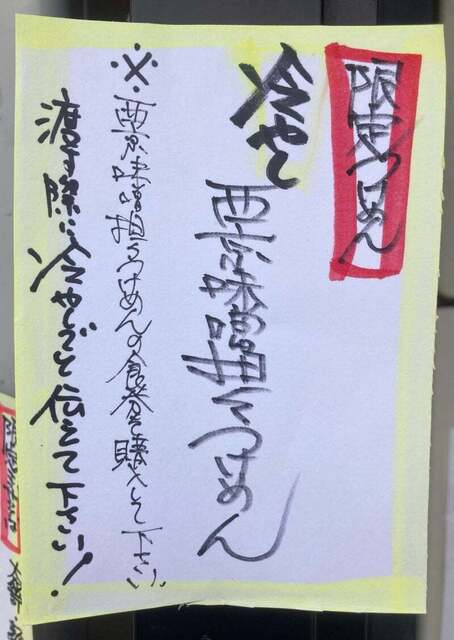 限定つけめん
冷やし
西京味噌担々つけめん
※西京味噌担々つけめんの食券を購入して下さい。
渡す際に冷やしでと伝えて下さい!